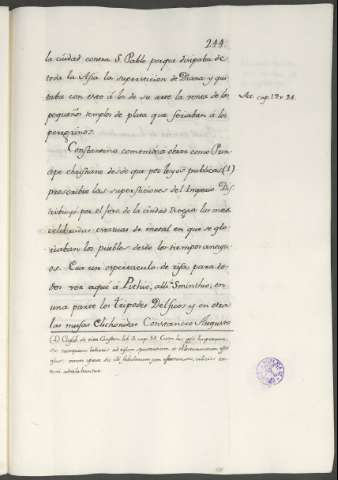 244
la ciudad contra S. Pablo porque disipaba de
toda la Asia la supersticion de Diana y qui
taba con esto á los de su arte la renta de los
pequeños templos de plata que forjaban á los
peregrinos.
Act. cap. 19 v. 24.
Constantino comenzó a obrar como Prin
cipe christiano desde que por leyes publicas (1)
proscribio las supersticiones del Imperio Dis
tribuyó por el foro de la ciudad Regia las mas
celebradas estatuas de metal en que se glo
riaban los pueblos desde los tiempos antigu
os. Era un espectaculo de risa para to
dos ver aqui á Pithio, alli Sminthio, en
una parte los Tripodes Delficos y en otra
las musas Elichonidas Constancio Augusto
(1) Euseb. de vita Constan. lib. 3. cap. 54.